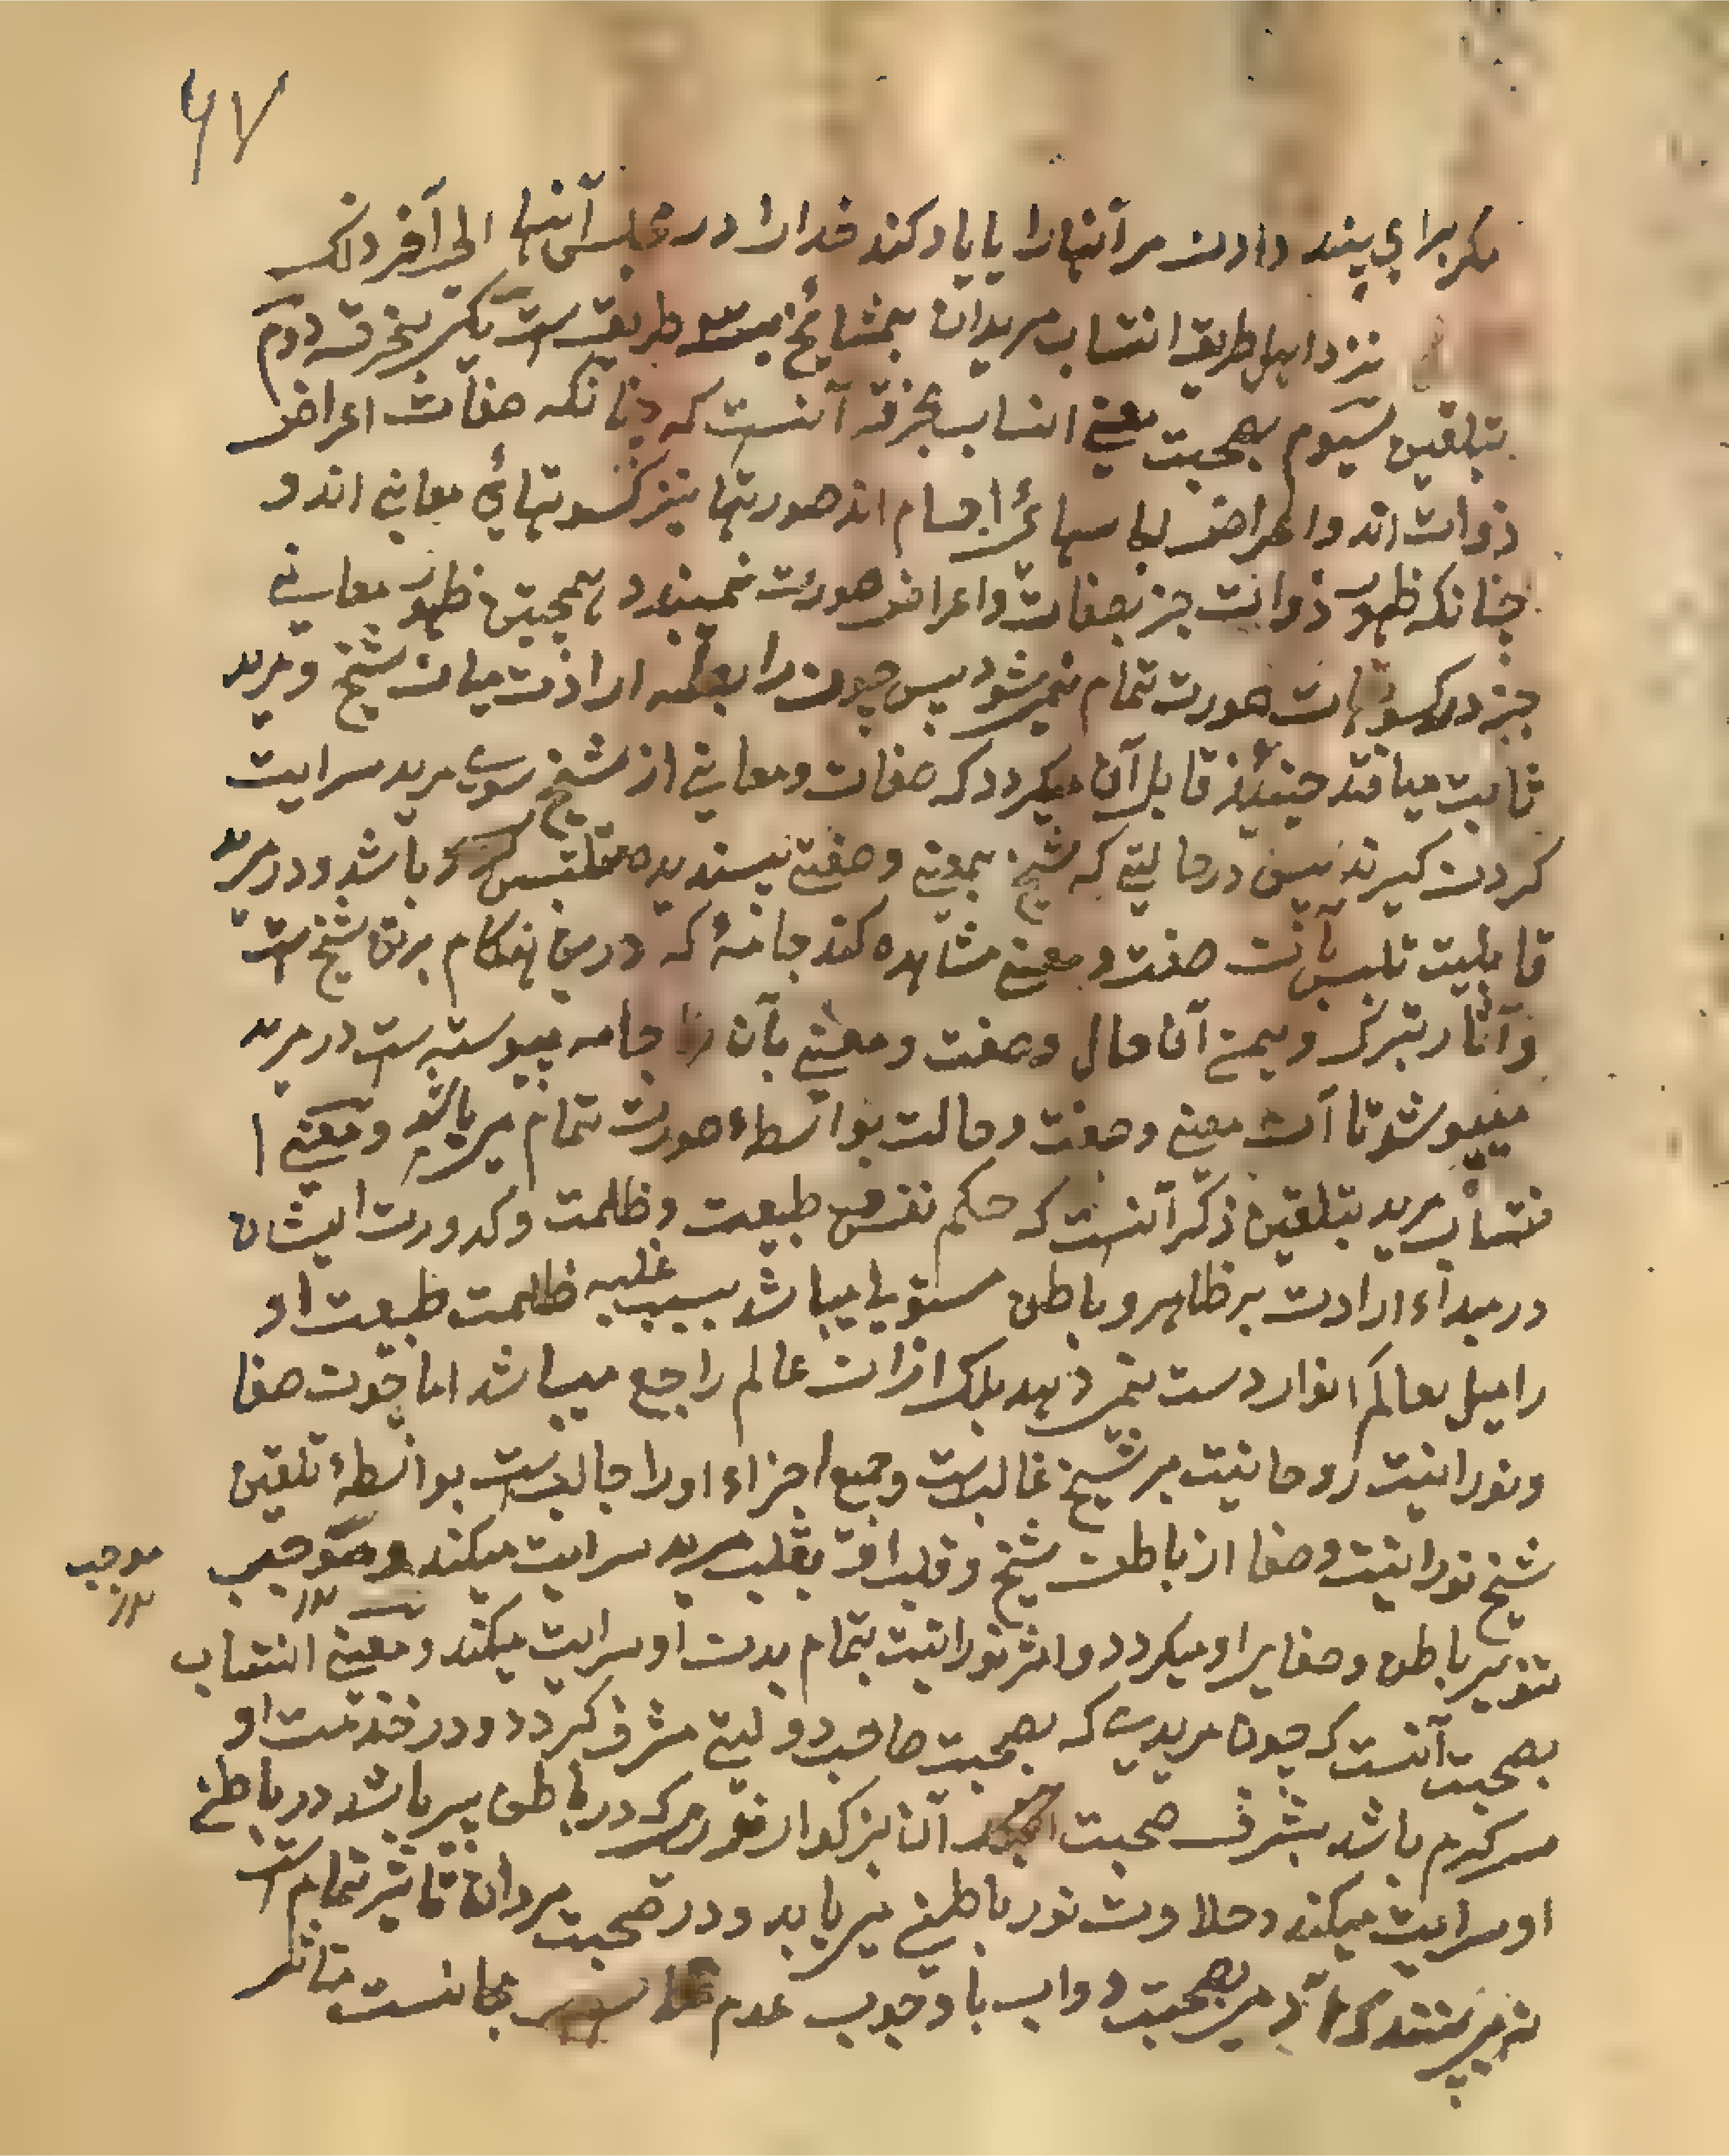 ۶۷
مکر برای پند دادن مر آنها را یا یاد کند خدا را در مجلس آنها الی آخر ذلک
نزد اهل طریق انتساب مریدان بمشایخ بسه طریق ست یکی بخرقه دوم
بتلقین سیوم بصحبت معنی انتساب بخرقه آنست که چنانکه صفات اعراض
ذوات اند و اعراض لباسهائ اجسام اند صورتها نیز کسوتهائ معانی اند و
چنانکه ظهور ذوات جز بصفات و اعراض صورت نمیبندد همچنین ظهور معانی
جز در کسوات صورت تمام نمیشود پس چون رابطه ارادت میان شیخ و مرید
ثابت میافتد حینئذ قابل آن میکردد که صفات و معانی از شیخ سوی مرید سرایت
کردن کیرند پس در حالتی که شیخ بمعنی و صفتی پسندیده متلبس باشد و در مرید
قابلیت تلبس بآن صفت و معنی مشاهده کند جامهٔ که درین هنکام بر تن شیخ ست
و آثار تبرک و یمن آن حال و صفت و معنی بآن جامه پیوسته ست در مرید
میپوشد تا آن معنی و صفت و حالت بواسطهٔ صورت تمام میریابد و معنی ا
نتساب مرید بتلقین ذکر آنست که حکم نفس طبیعت و ظلمت و کدورت ایشان
در مبداء ارادت بر ظاهر و باطن مستولی میباشد بسبب غلبه ظلمت طبیعت او
را میل بعالم انوار دست نمی دهد بلک ازان عالم راجع میباشد اما چون صفا
و نورانیت روحانیت بر شیخ غالبست و جمیع اجزاء او را جالبست بواسطهٔ تلقین
شیخ نورانیت و صفا از باطن شیخ و قلب او بقلب مرید سرایت میکند و موجب
موجب
تنویر باطن و صفایر او میکردد و اثر نورانیت بتمام بدن او سرایت میکند و معنی انتساب
بصحبت آنست که چون مریدی که بصحبت صاحب دولتی مشرف کردد و در خدمت او
سرکرم باشد بشرف صحبت آن بزرکوار نور که در باطن پیر باشد در باطن
او سرایت میکند و حلاوت نور باطنی میریابد و در صحبت مردان تاثیر تمام ست
نمیبینند که آدمی بصحبت دواب با وجوب عدم مجانست متاثر